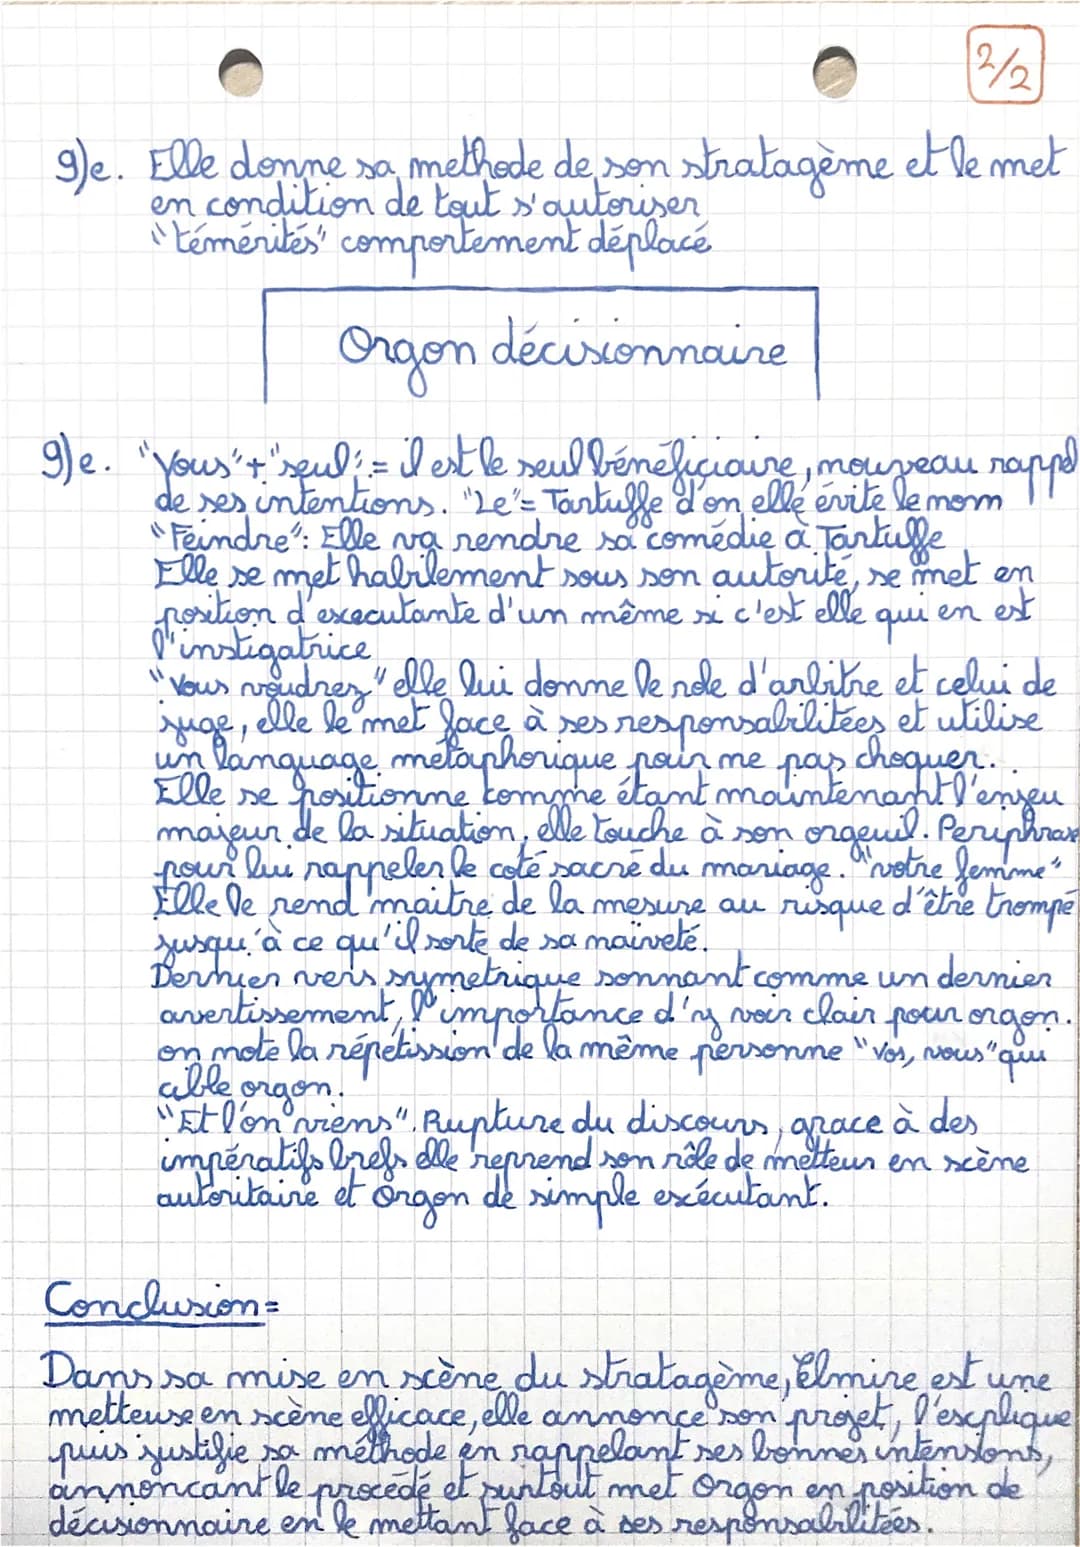 2/2
9)e. Elle donne sa methode de son stratagème et le met
en condition de tout s'autoriser
"témérités" comportement déplacé
Orgon décisionnaire
9)e. "Vous" + "seul": = il est le seul bénéficiaire, nouveau rappel
de ses intentions. "Le" = Tartuffe d'on elle évite le nom
"Feindre": Elle va rendre sa comédie à Tartuffe
Elle se met habilement sous son autorité, se met en
position d'executante d'un même si c'est elle qui en est
l'instigatrice
"Vous voudrez" elle lui donne le role d'arbitre et celui de
juge, elle le met face à ses responsabilitées et utilise
un language métaphorique pour ne pas choquer.
Elle se positionne comme étant maintenant l'enjeu
majeur de la situation, elle touche à son orgeuil. Periphrase
pour lui rappeler le coté sacré du mariage. "votre femme"
Elle le rend maitre de la mesure au risque d'être trompé
jusqu'à ce qu'il sorte de sa naiveté.
Dernier vers symetrique sonnant comme un dernier
avertissement, l'importance d'y voir clair pour orgon.
on note la répétission de la même personne "vos, vous" qui
cible orgon.
"Et l'on viens". Rupture du discours, grace à des
impératifs brefs elle reprend son rôle de metteur en scène
autoritaire et Orgon de simple exécutant.
Conclusion =
Dans sa mise en scène du stratagème, Elmire est une
metteuse en scène efficace, elle annonce son projet, l'explique
puis justifie sa méthode en rappelant ses bonnes intensions,
annoncant le procédé et surtout met Orgon en position de
décisionnaire en le mettant face à ses responsabilitées.